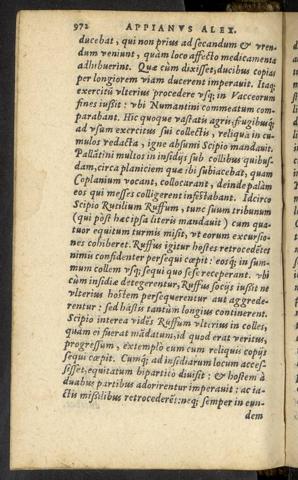 972 APPIANVS ALEX.
ducebat, qui non prius ad secandum & vren
dum veniunt, quàm loco affecto medicamenta
adhibuerint. Quæ cùm dixisset, ducibus copias
per longiorem viam ducerent imperauit. Itaq;
exercitũ vlterius procedere vsq; in Vacceorum
fines iussit: vbi Numantini commeatum com-
parabant. Hic quoque vastatis agris, frugibusq;
ad vsum exercitus sui collectis, reliqua in cu-
mulos redacta, igne absumi Scipio mandauit.
Pallãtini multos in insidijs sub collibus quibus-
dam, circa planiciem quæ ibi subiacebat, quam
Coplanium vocant, collocarant, deinde palàm
eos qui messes colligerent infestabant. Idcirco
Scipio Rutilium Ruffum, tunc suum tribunum
(qui pòst hæc ipsa literis mandauit) cum qua-
tuor equitum turmis misit, vt eorum excursio-
nes cohiberet. Ruffus igitur hostes retrocedẽtes
nimis confidenter persequi cœpit: eosq; in sum-
mum collem vsq; sequi quo sese receperant. vbi
cùm insidiæ detegerentur, Ruffus socijs iussit ne
vlterius hostem persequerentur aut aggrede-
rentur: sed hastis tantùm longius continerent.
Scipio interea vidẽs Ruffum vlterius in colles,
quàm ei fuerat mãdatum, id quod erat veritus,
progressum, extemplò eum cum reliquis copijs
sequi cœpit. Cumq; ad insidiarum locum acces-
sisset, equitatum bipartitò diuisit: & hostem à
duabus partibus adorirentur imperauit: ac ia-
ctis missilibus retrocederẽt: neq; semper in eun-
dem